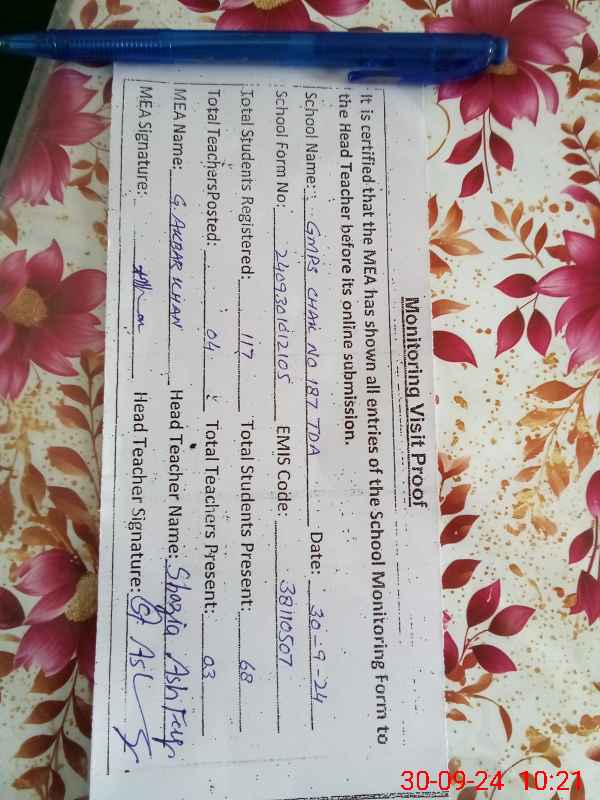 Monitoring Visit Proof
It is certified that the MEA has shown all entries of the School Monitoring Form to
the Head Teacher before its online submission.
School Name: GMPS CHAK NO 187 TDA Date: 30-9-24
School Form No: EMIS Code: 38110507
Total Students Registered: 117 Total Students Present: 68
Total TeachersPosted: 04 Total Teachers Present: 03
MEA Name: G. AKBAR KHAN Head Teacher Name: Shazia
MEA Signature: Head Teacher Signature:
30-09-24 10:21